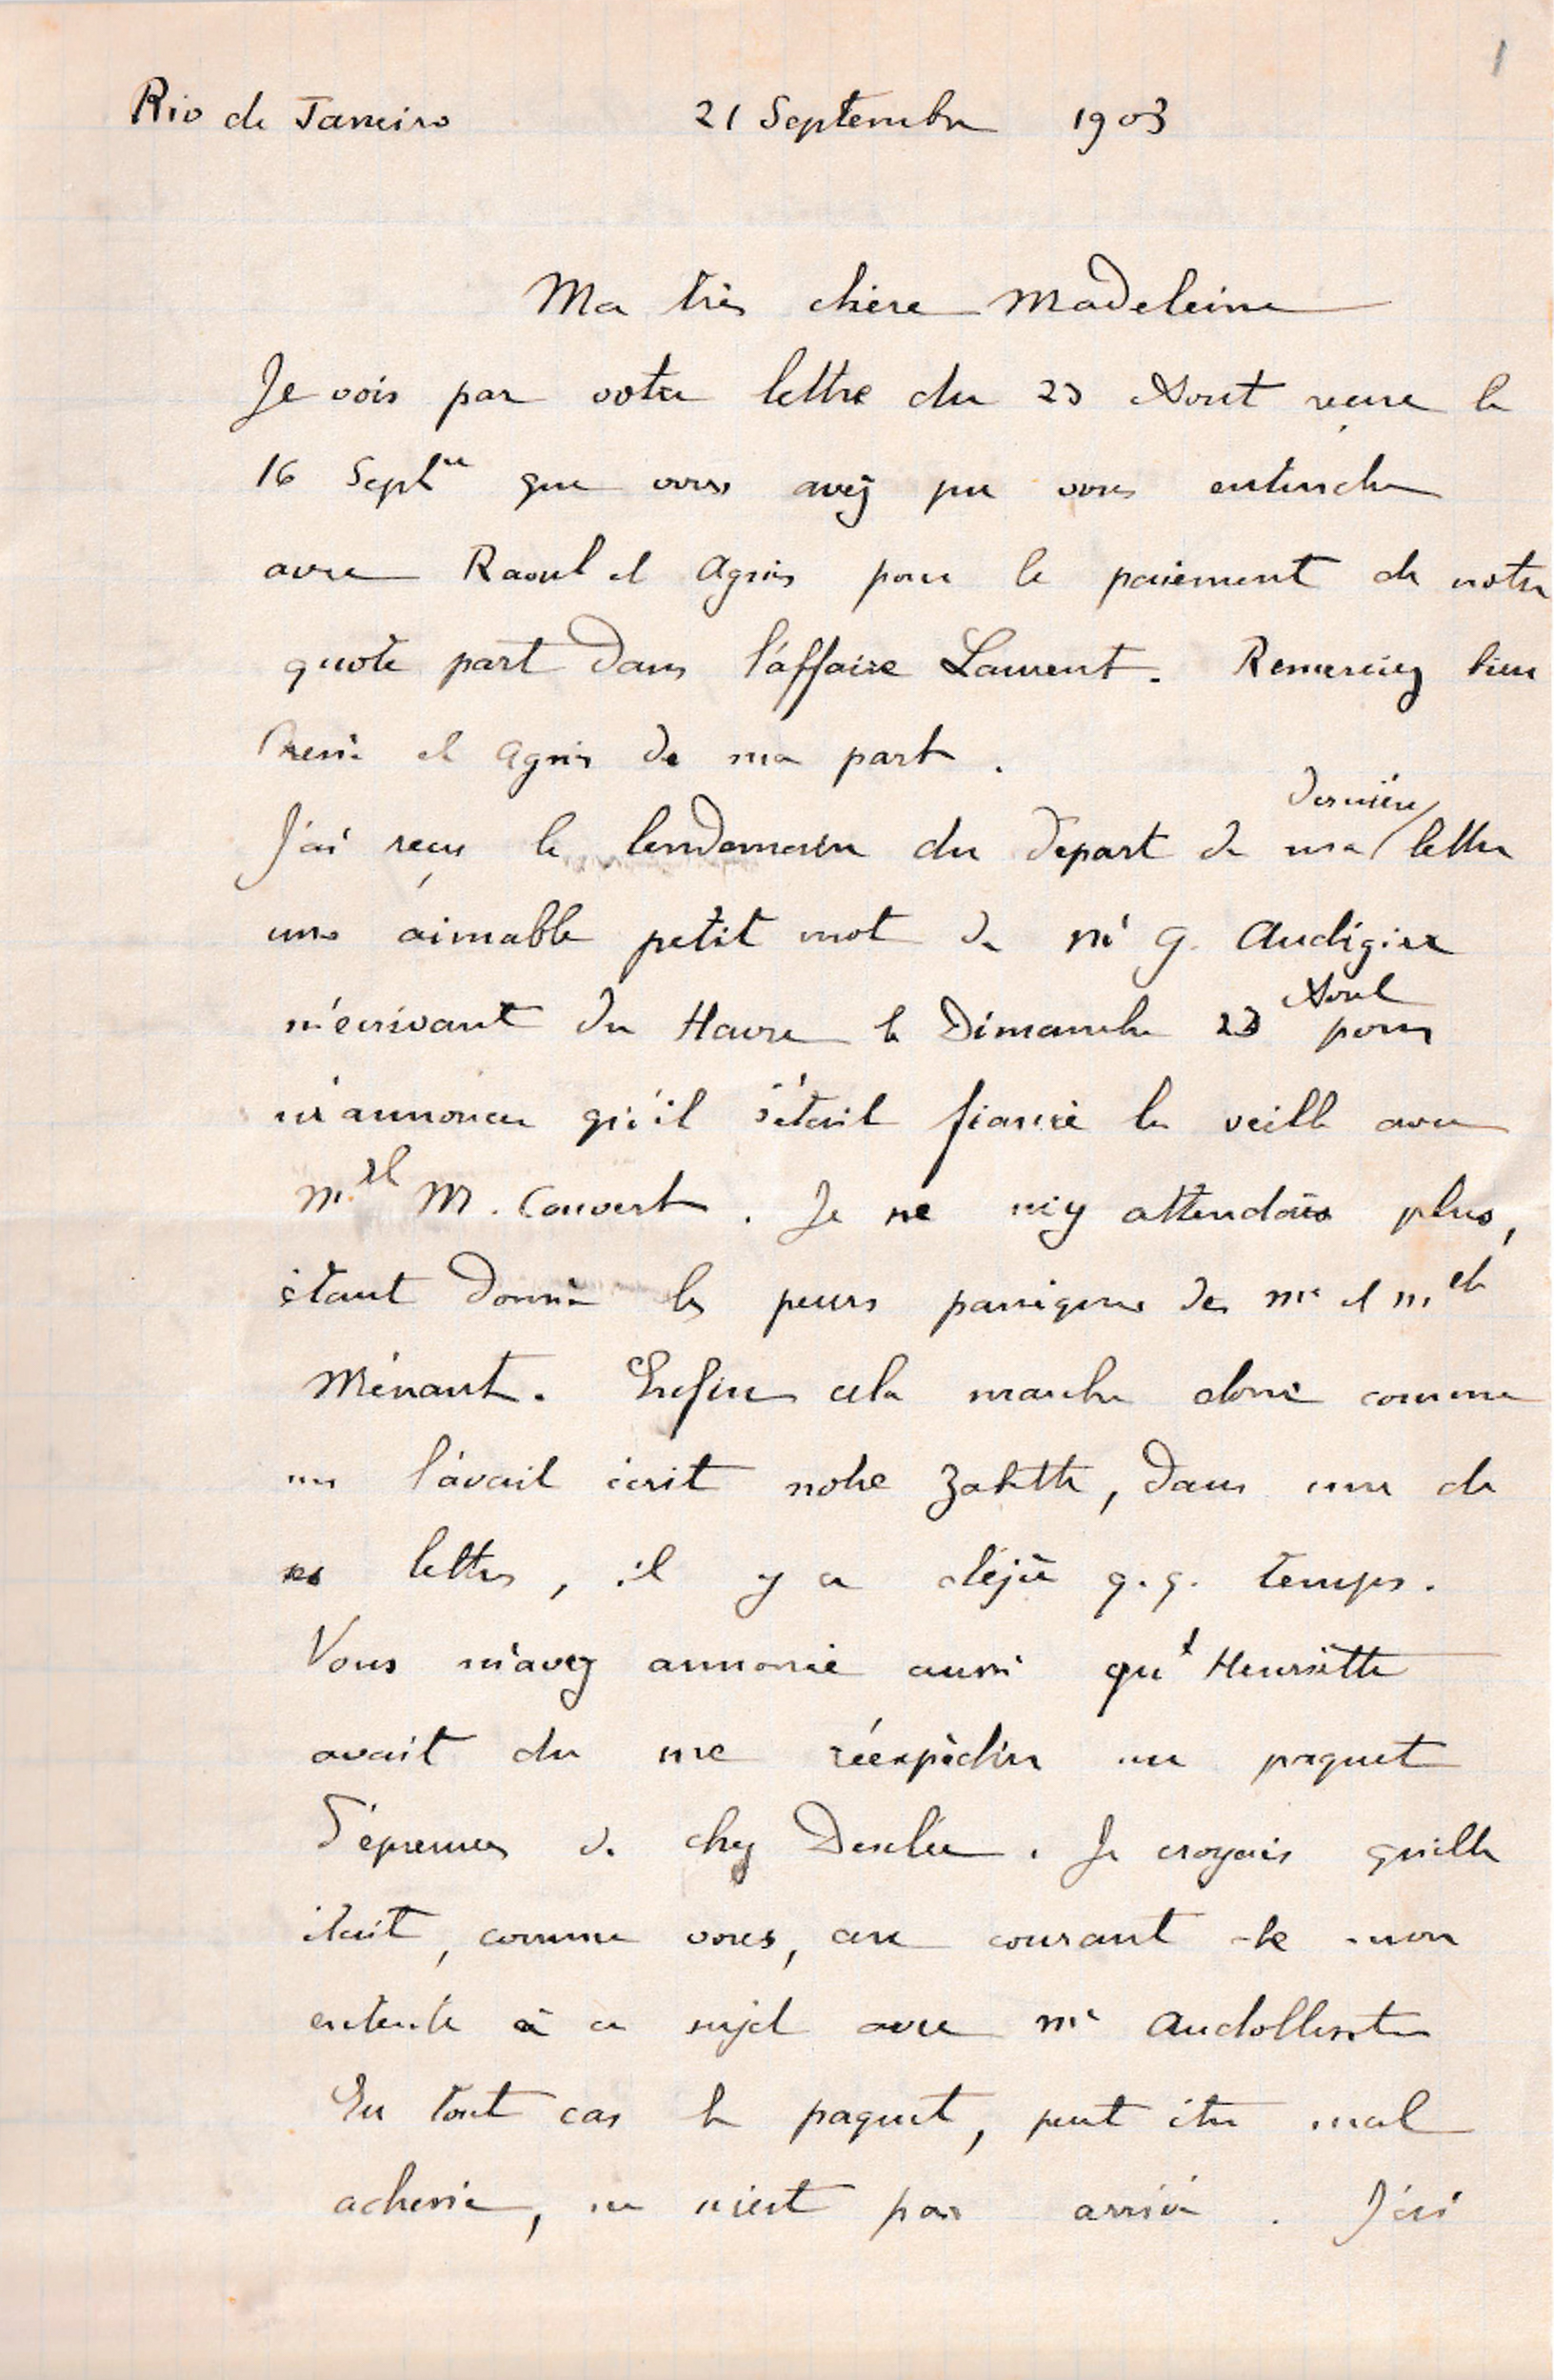 1
Rio de Janeiro 21 Septembre 1903
Ma très chère Madeleine
Je vois par votre lettre du 23 Aout reçue le
16 Septbre que vous avez pu vous entendre
avec Raoul et Agnès pour le paiement de notre
quote part dans l'affaire Laurent. Remerciez bien
René et Agnès de ma part.
J'ai reçu le lendemain du départ de ma dernière lettre
un aimable petit mot de Mr G. Audigier
m'écrivant du Havre le Dimanche 23 Aout pour
m'annoncer qu'il s'était fiancé la veille avec
Melle M. Couvert. Je ne m'y attendais plus,
étant donné les peurs paniques de Mr et Melle
Ménant. Enfin cela marche donc comme
me l'avait écrit notre Zabeth, dans une de
ses lettres, il y a déjà q.q. temps.
Vous m'avez annoncé aussi qu'Henriette
avait du me réexpédier un paquet
d'épreuves de chez Desclée. Je croyais qu'elle
était, comme vous, au courant de mon
entente à ce sujet avec Mr Audollent
En tout cas le paquet, peut être mal
acheminé, ne m'est pas arrivé. J'ai